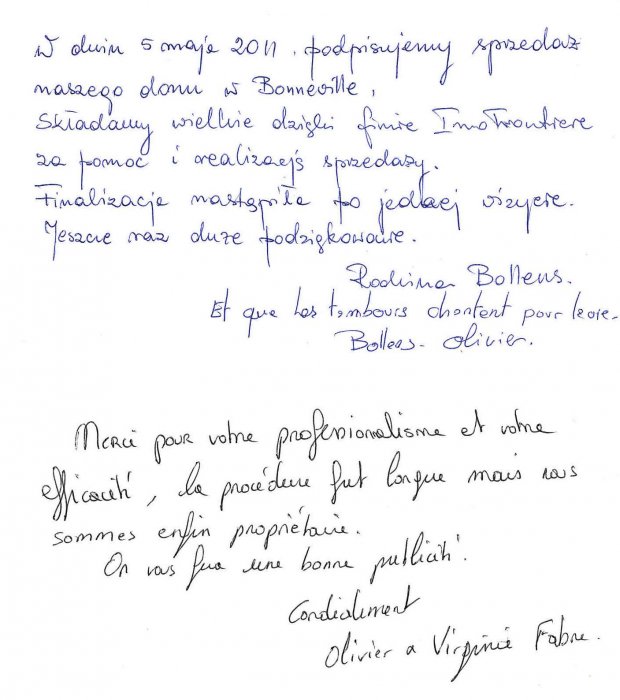 W dniu 5 maja 2011. podpisujemy sprzedaż
naszego domu w Bonneville,
Składamy wielkie dzięki firmie ImoFrontiere
za pomoc i realizację sprzedaży.
Finalizacja nastąpiła po jednej wizycie.
Jeszcze raz duże podziękowanie.
Rodzina Bollens.
Et que les tambours chantent pour
Bollens - Olivier.
Merci pour votre professionnalisme et votre
efficacité, la procédure fut longue mais nous
sommes enfin propriétaire.
On vous fera une bonne publicité.
Cordialement
Olivier & Virginie Fabre.